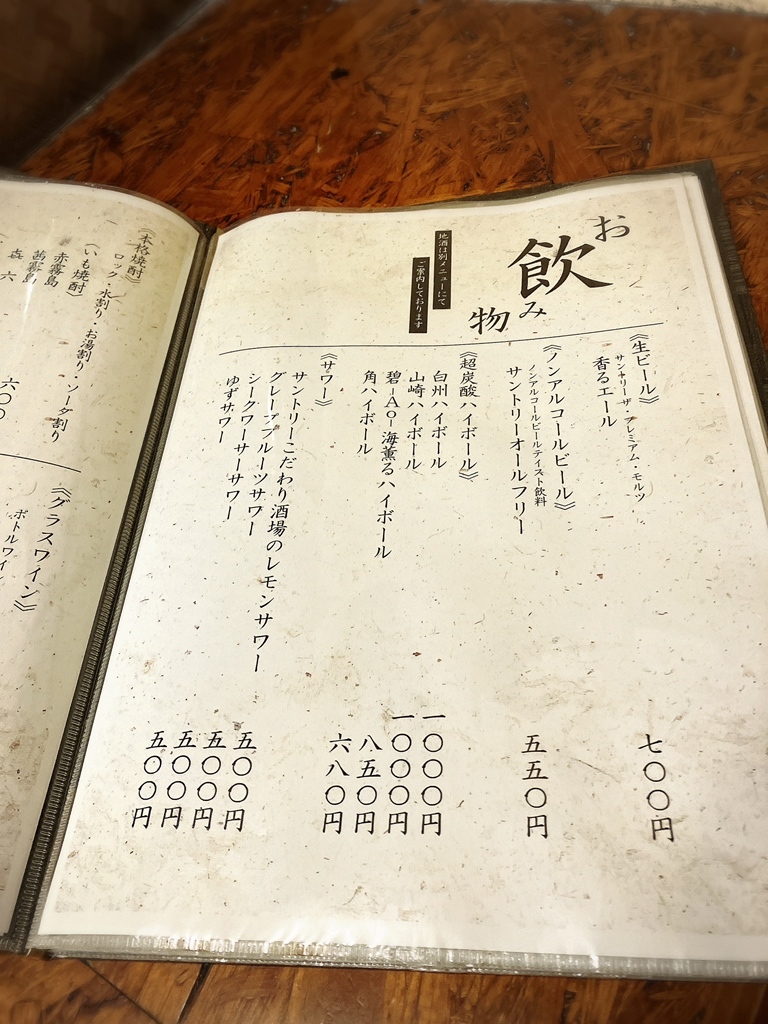 お飲み物
地酒は別メニューにて
ご案内しております
《生ビール》
サントリーザ・プレミアム・モルツ
香るエール
七〇〇円
《ノンアルコールビール》
ノンアルコールビールテイスト飲料
サントリーオールフリー
五五〇円
《超炭酸ハイボール》
白州ハイボール
一〇〇〇円
山崎ハイボール
一〇〇〇円
碧-Ao-海薫るハイボール
八五〇円
角ハイボール
六八〇円
《サワー》
サントリーこだわり酒場のレモンサワー
五〇〇円
グレープフルーツサワー
五〇〇円
シークワーサーサワー
五〇〇円
ゆずサワー
五〇〇円
《本格焼酎》
ロック・水割り・お湯割り・ソーダ割り
(いも焼酎)
赤霧島
茜霧島
㐂六
六〇〇
《グラスワイン》
ボトルワイン